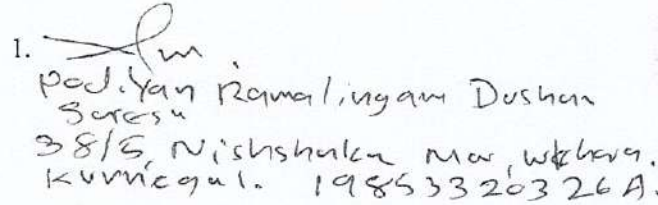 1.
Podiyan Ramalingam Dushan
Suresu
38/5, Nishshaka Mar, Wehera.
Kurunegul. 19853320326A.